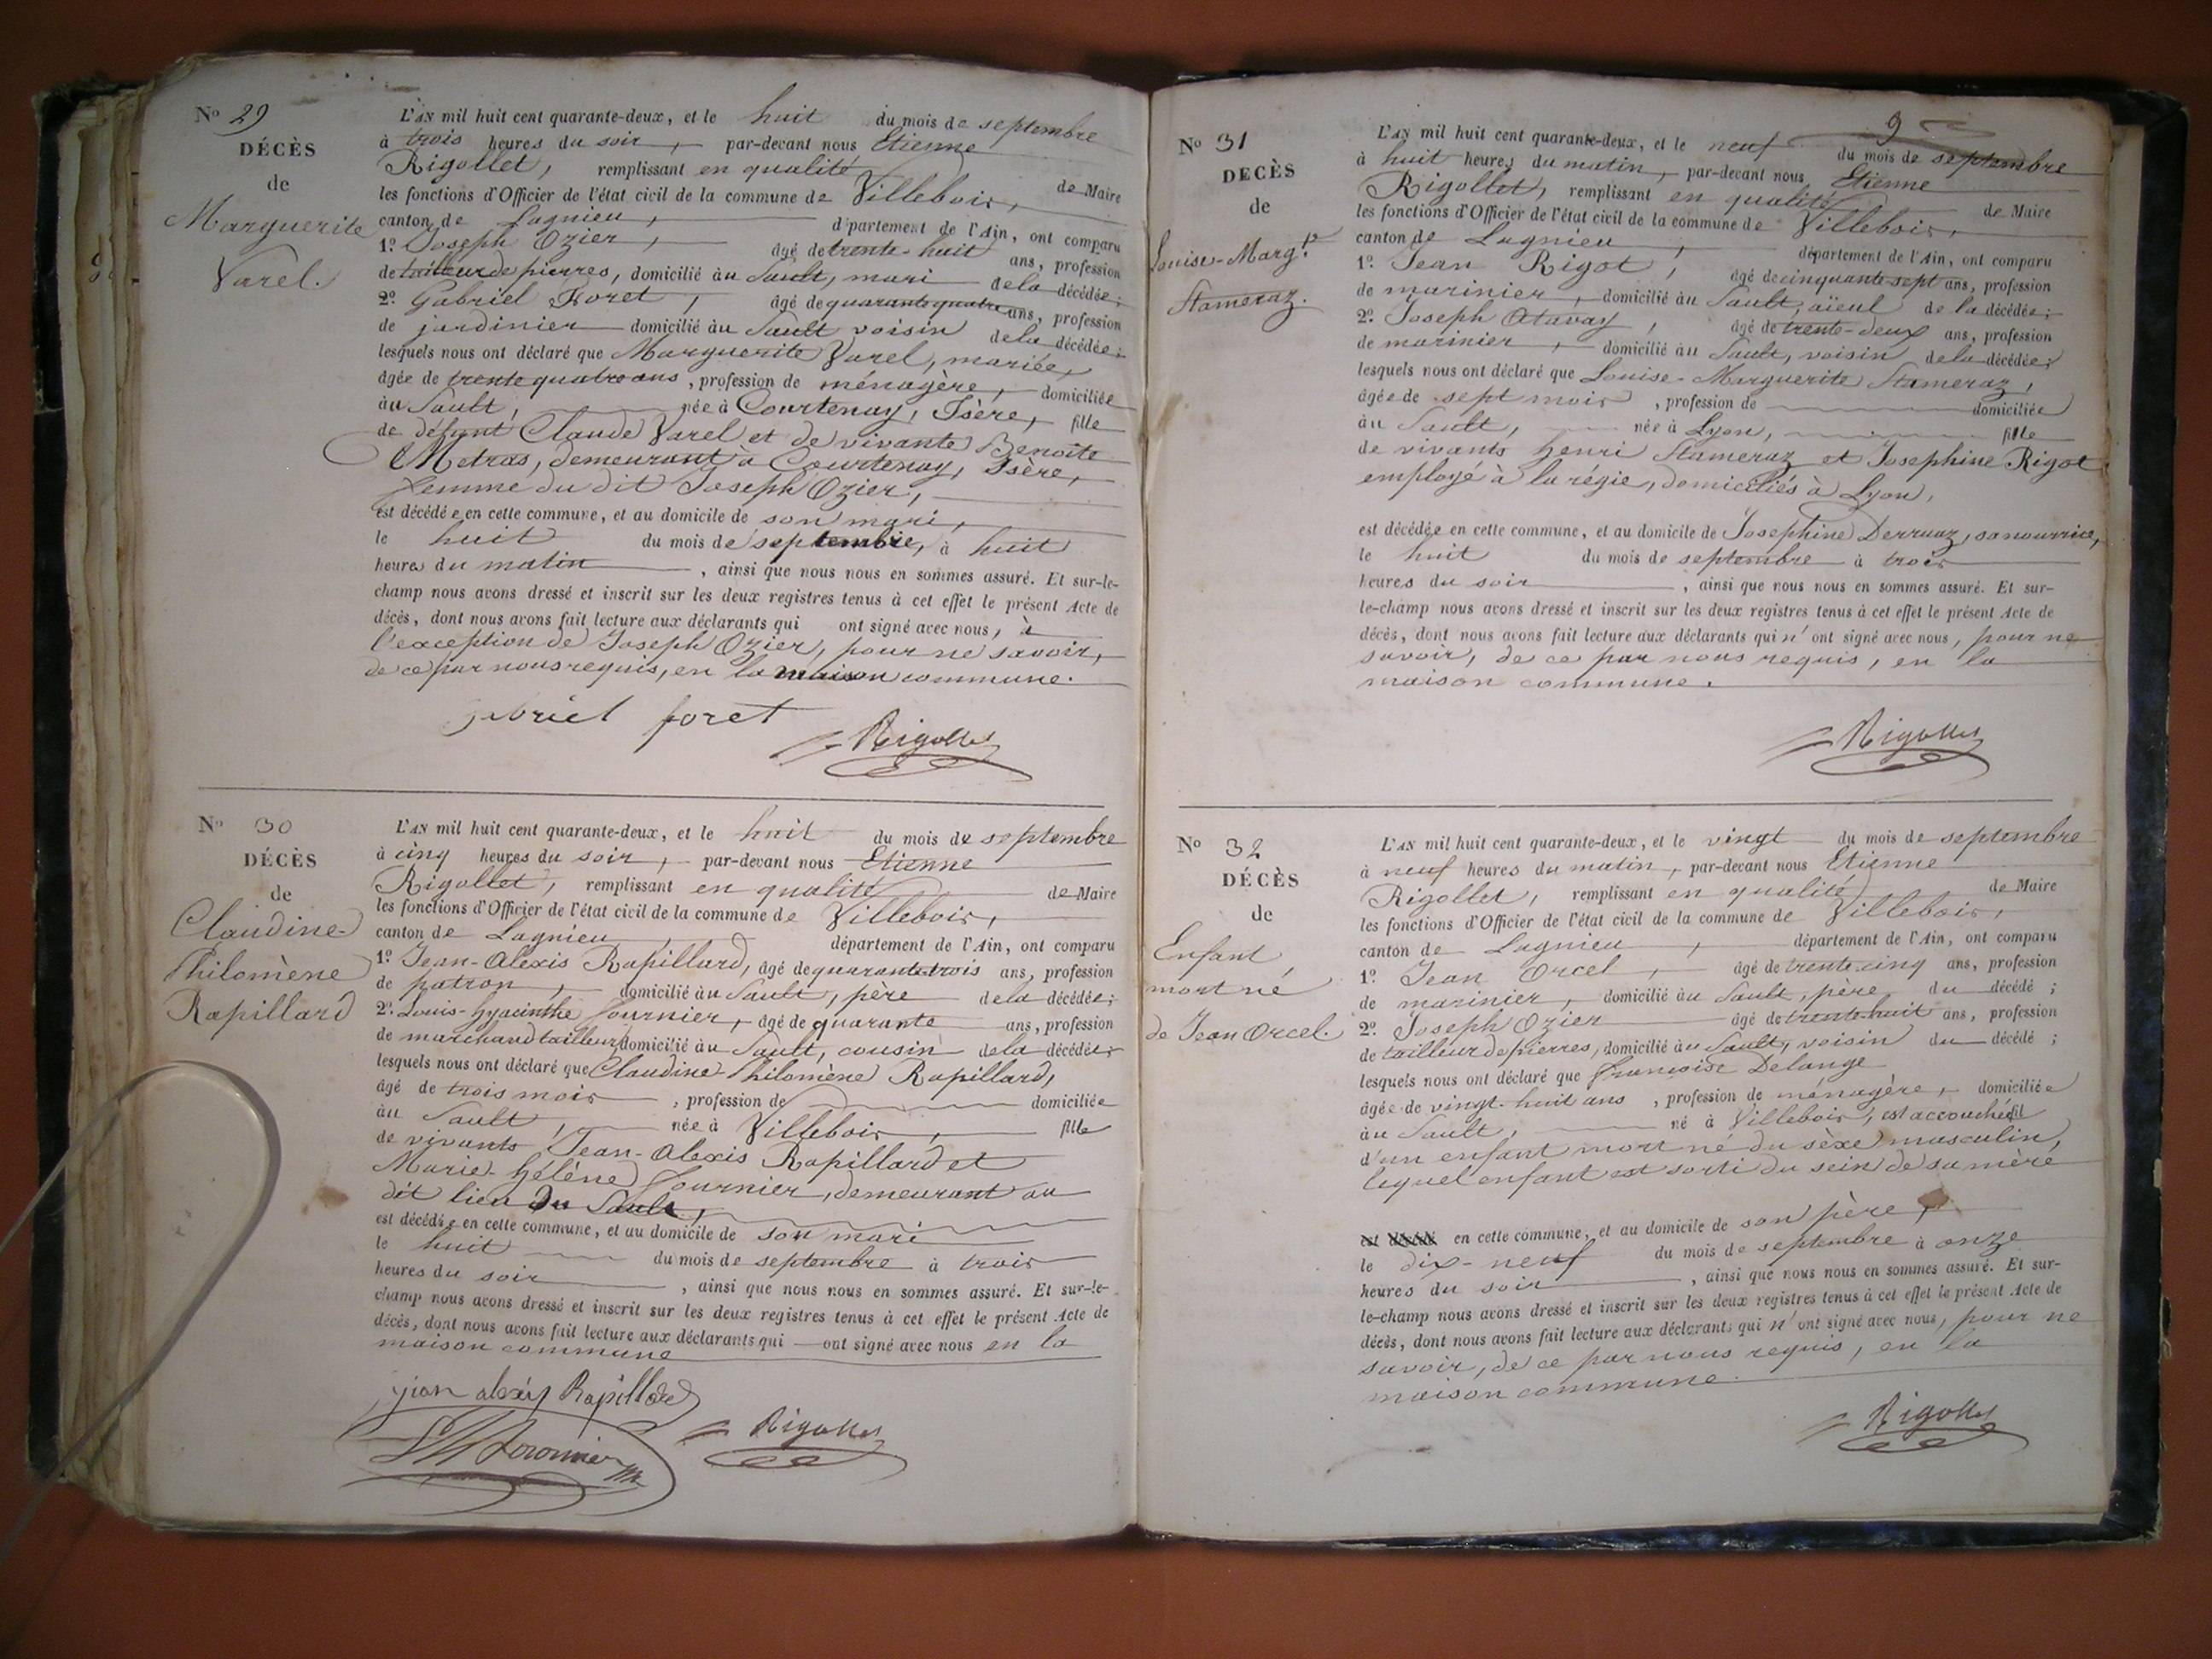 No 29
DÉCÈS
de
Marguerite
Varel.
L'AN mil huit cent quarante-deux, et le huit du mois de septembre
à trois heures du soir, par-devant nous Etienne
Rigollet, remplissant en qualité de Maire
les fonctions d'Officier de l'état civil de la commune de Villebois,
canton de Lagnieu, département de l'Ain, ont comparu
1º Joseph Ozier, âgé de trente-huit ans, profession
de tailleur de pierres, domicilié au Sault, mari de la décédée;
2º Gabriel Foret, âgé de quarante quatre ans, profession
de jardinier domicilié au Sault voisin de la décédée;
lesquels nous ont déclaré que Marguerite Varel, mariée,
âgée de trente quatre ans, profession de ménagère, domiciliée
au Sault, née à Courtenay, Isère, fille
de défunt Claude Varel et de vivante Benoîte
Metras, demeurant à Courtenay, Isère,
femme du dit Joseph Ozier,
est décédée en cette commune, et au domicile de son mari,
le huit du mois de septembre, à huit
heures du matin, ainsi que nous nous en sommes assuré. Et sur-le-
champ nous avons dressé et inscrit sur les deux registres tenus à cet effet le présent Acte de
décès, dont nous avons fait lecture aux déclarants qui ont signé avec nous, à
l'exception de Joseph Ozier, pour ne savoir,
de ce par nous requis, en la maison commune.
gabriel foret
Rigollet
No 30
DÉCÈS
de
Claudine-
Philomène
Rapillard
L'AN mil huit cent quarante-deux, et le huit du mois de septembre
à cinq heures du soir, par-devant nous Etienne
Rigollet, remplissant en qualité de Maire
les fonctions d'Officier de l'état civil de la commune de Villebois,
canton de Lagnieu, département de l'Ain, ont comparu
1º Jean-Alexis Rapillard, âgé de quarante-trois ans, profession
de patron, domicilié au Sault, père de la décédée;
2º Louis-Hyacinthe Fournier, âgé de quarante ans, profession
de marchand tailleur, domicilié au Sault, cousin de la décédée;
lesquels nous ont déclaré que Claudine-Philomène Rapillard,
âgé de trois mois, profession de domiciliée
au Sault, née à Villebois, fille
de vivants Jean-Alexis Rapillard et
Marie-Hélène Fournier, demeurant au
dit lieu du Sault,
est décédée en cette commune, et au domicile de son mari
le huit du mois de septembre à trois
heures du soir, ainsi que nous nous en sommes assuré. Et sur-le-
champ nous avons dressé et inscrit sur les deux registres tenus à cet effet le présent Acte de
décès, dont nous avons fait lecture aux déclarants qui ont signé avec nous en la
maison commune
jean alexis Rapillard
LH fournier
Rigollet
9
No 31
DÉCÈS
de
Louise-Margte
Stameraz.
L'AN mil huit cent quarante-deux, et le neuf du mois de septembre
à huit heures du matin, par-devant nous Etienne
Rigollet, remplissant en qualité de Maire
les fonctions d'Officier de l'état civil de la commune de Villebois,
canton de Lagnieu, département de l'Ain, ont comparu
1º Jean Rigot, âgé de cinquante-sept ans, profession
de marinier, domicilié au Sault, aïeul de la décédée;
2º Joseph Atavay, âgé de trente-deux ans, profession
de marinier, domicilié au Sault, voisin de la décédée;
lesquels nous ont déclaré que Louise-Marguerite Stameraz,
âgée de sept mois, profession de domiciliée
au Sault, née à Lyon, fille
de vivants henri Stameraz et Josephine Rigot
employé à la régie, domiciliés à Lyon,
est décédée en cette commune, et au domicile de Josephine Derruaz, sa nourrice,
le huit du mois de septembre à trois
heures du soir, ainsi que nous nous en sommes assuré. Et sur-
le-champ nous avons dressé et inscrit sur les deux registres tenus à cet effet le présent Acte de
décès, dont nous avons fait lecture aux déclarants qui n'ont signé avec nous, pour ne
savoir, de ce par nous requis, en la
maison commune.
Rigollet
No 32
DÉCÈS
de
Enfant
mort né
de Jean Orcel.
L'AN mil huit cent quarante-deux, et le vingt du mois de septembre
à neuf heures du matin, par-devant nous Etienne
Rigollet, remplissant en qualité de Maire
les fonctions d'Officier de l'état civil de la commune de Villebois,
canton de Lagnieu, département de l'Ain, ont comparu
1º Jean Orcel, âgé de trente-cinq ans, profession
de marinier, domicilié au Sault, père du décédé;
2º Joseph Ozier âgé de trente-huit ans, profession
de tailleur de pierres, domicilié au Sault, voisin du décédé;
lesquels nous ont déclaré que françoise Delange
âgée de vingt-huit ans, profession de ménagère, domiciliée
au Sault, né à Villebois, est accouchée fil
d'un enfant mort né du sèxe masculin,
lequel enfant est sorti du sein de sa mère
est décédé en cette commune, et au domicile de son père,
le dix-neuf du mois de septembre à onze
heures du soir, ainsi que nous nous en sommes assuré. Et sur-
le-champ nous avons dressé et inscrit sur les deux registres tenus à cet effet le présent Acte de
décès, dont nous avons fait lecture aux déclarants qui n'ont signé avec nous, pour ne
savoir, de ce par nous requis, en la
maison commune.
Rigollet